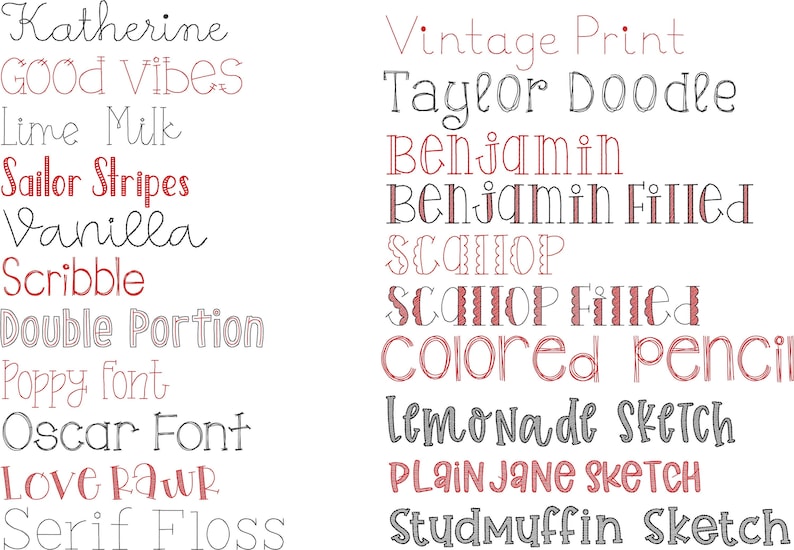 Katherine
Good Vibes
Lime Milk
Sailor Stripes
Vanilla
Scribble
Double Portion
Poppy Font
Oscar Font
Love Rawr
Serif Floss
Vintage Print
Taylor Doodle
Benjamin
Benjamin Filled
Scallop
Scallop Filled
Colored Pencil
Lemonade Sketch
Plain Jane Sketch
Studmuffin Sketch